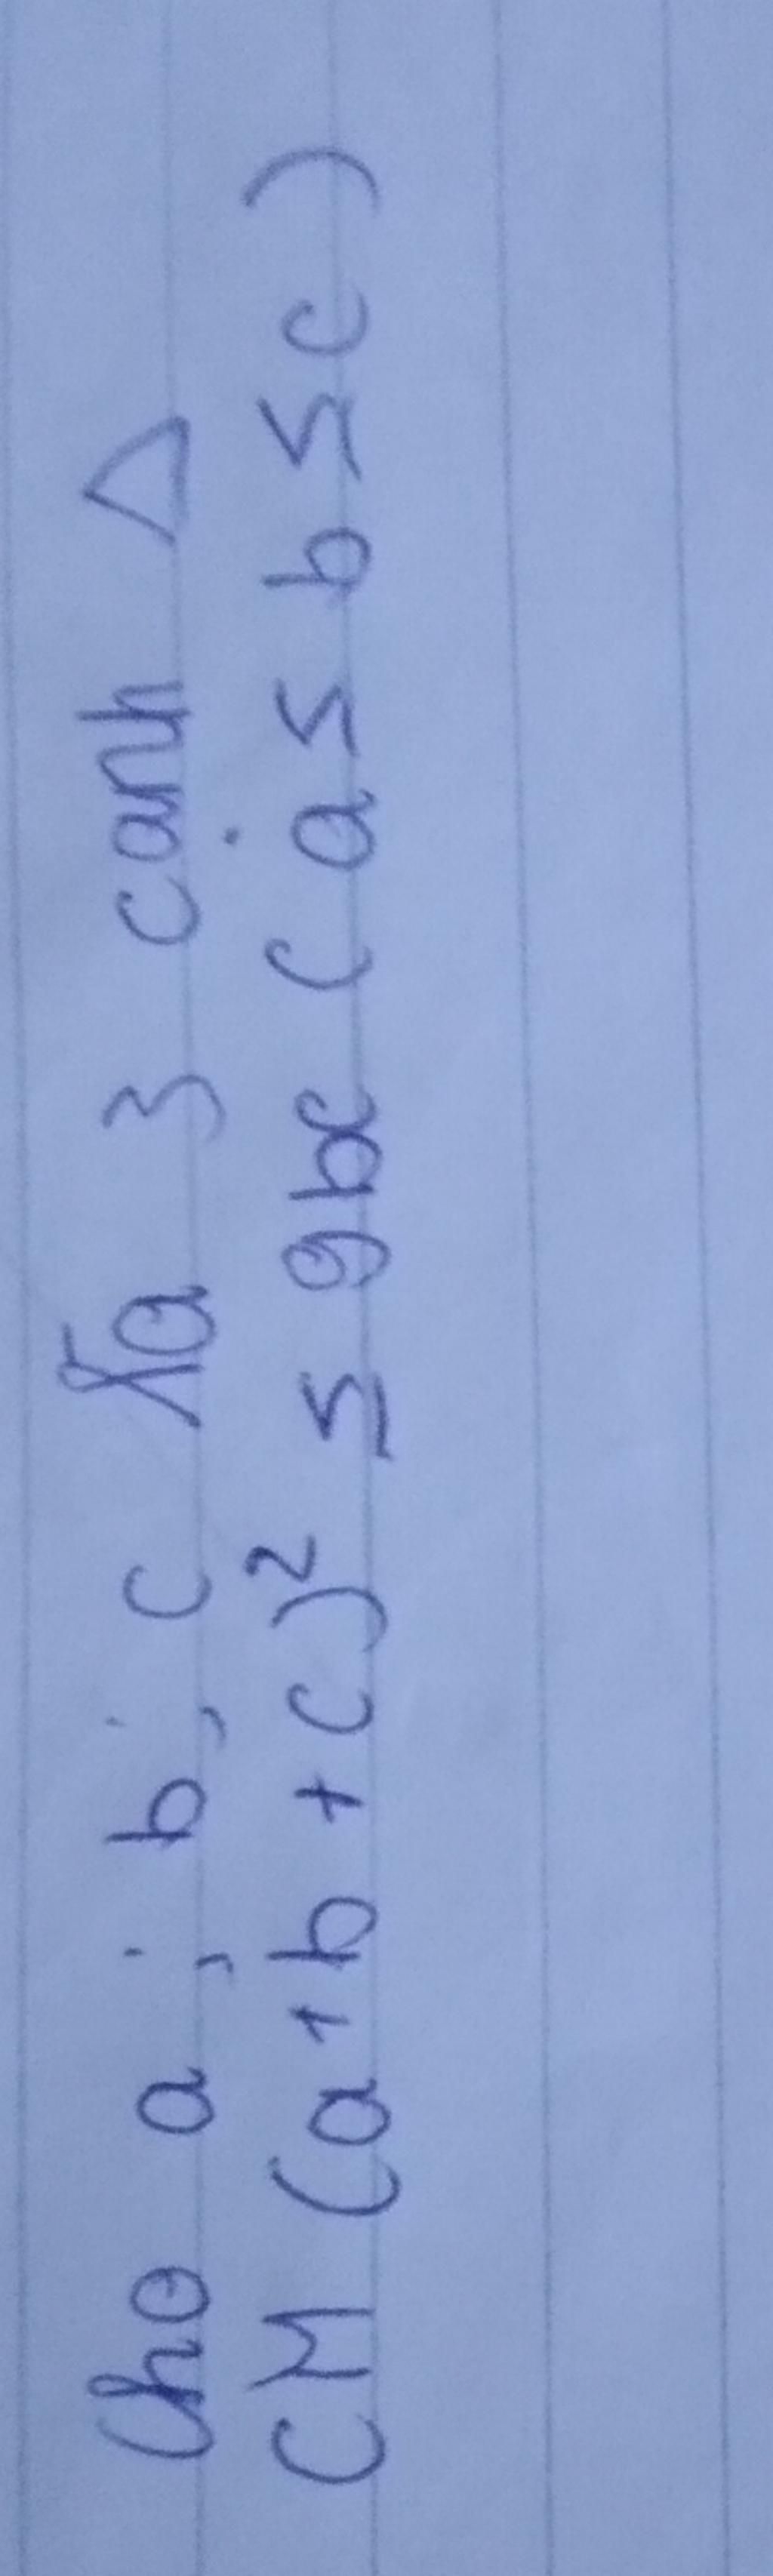 Cho a; b; c là 3 cạnh Δ
CM (a + b + c)² ≤ 9bc (a ≤ b ≤ c)